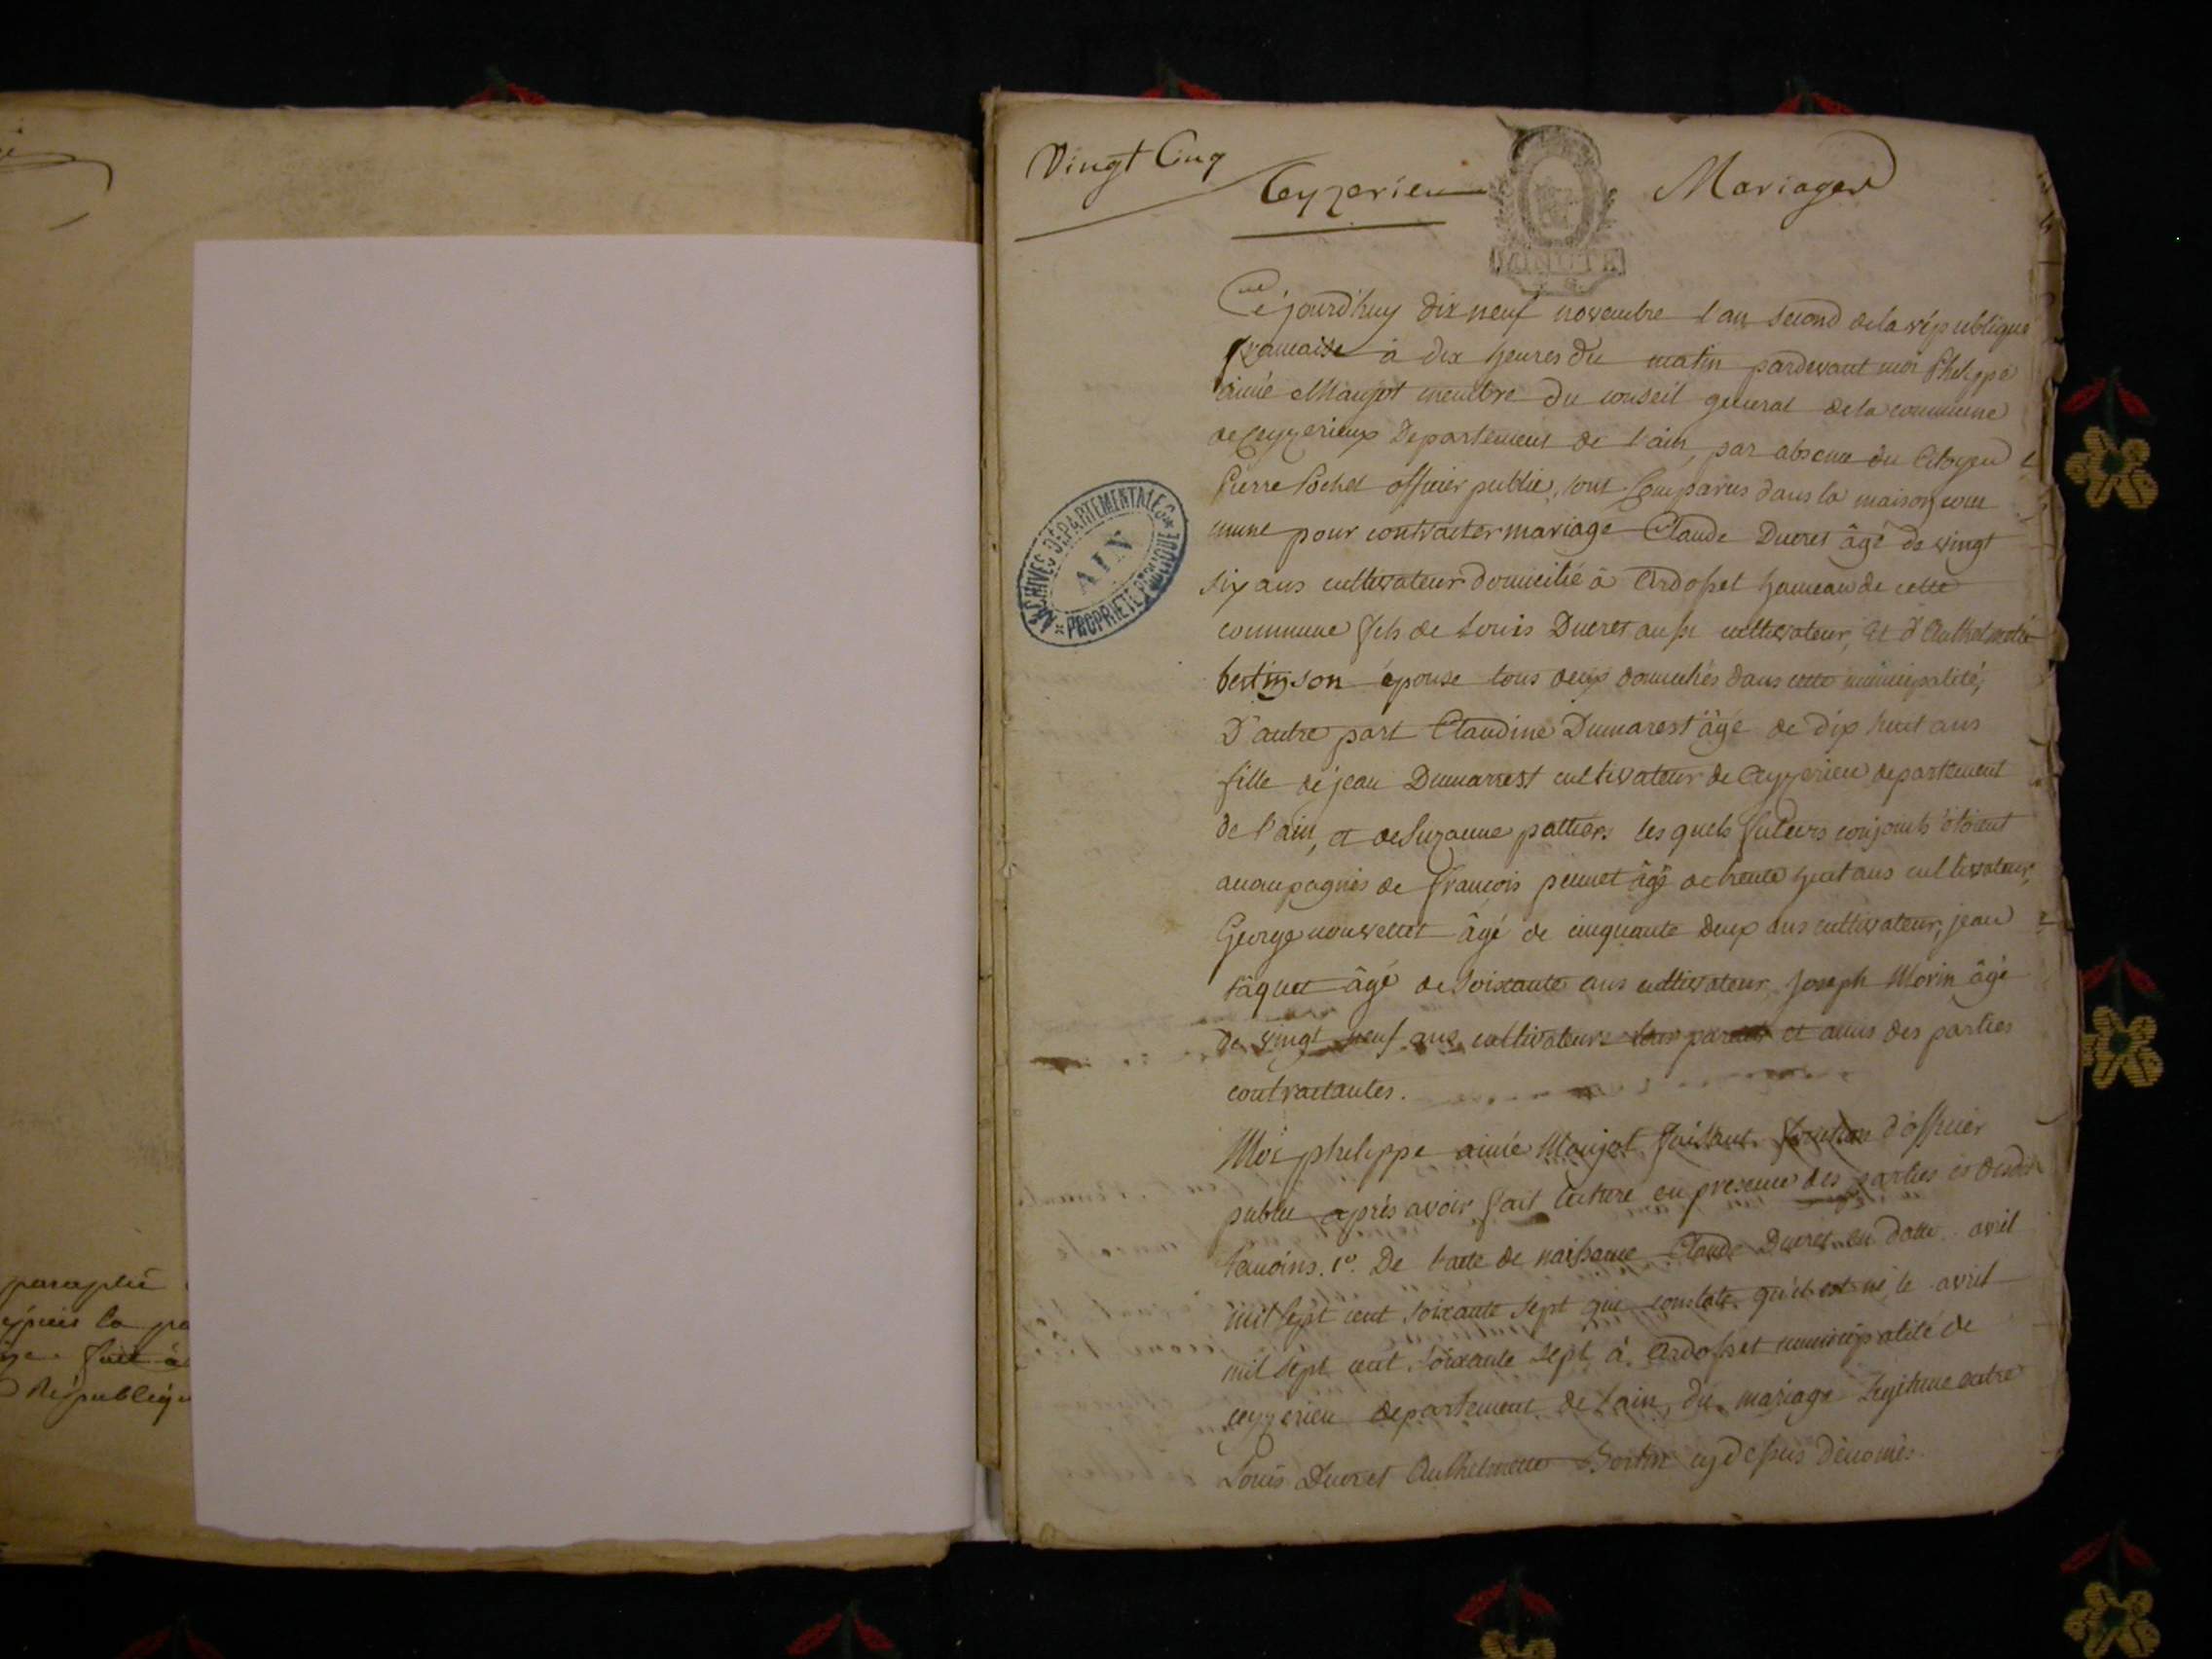 paraphé
la
fait à
Républiq
Vingt Cinq
Ceyzerieu
Mariages
MINUTE
ARCHIVES DÉPARTEMENTALES
AIN
* PROPRIÉTÉ PUBLIQUE *
Cejourd'huy dix neuf novembre l'an second de la république
francaise à dix heures du matin pardevant moi Philippe
aimé Maujot membre du conseil general de la commune
de Ceyzerieux Departement de l'ain, par absence du Citoyen
Pierre Pochet officier public, sont Comparus dans la maison com
mune pour contracter mariage Claude Ducret âgé de vingt
six ans cultivateur domicilié à Ardosset hameau de cette
commune fils de Louis Ducret aussi cultivateur, Et d'Anthelmette
bertin son épouse tous deux domiciliés dans cette municipalité,
D'autre part Claudine Dumarest âgé de dix huit ans
fille de jean Dumarrest cultivateur de Ceyzerieu departement
de l'ain, et de Suzanne pattiers les quels futurs conjoints étoient
accompagnés de francois peunet âgé de trente huit ans cultivateur,
George nouvellet âgé de cinquante deux ans cultivateur, jean
taquet âgé de soixante ans cultivateur joseph Morin âgé
de vingt neuf ans cultivateurs tous parents et amis des parties
contractantes.
Moi philippe aimé Maujot faisant fonction d'officier
public après avoir fait lecture en presence des parties et desdits
temoins. 1º. De l'acte de naissance Claude Ducret en datte avril
mil sept cent soixante sept qui constate qu'il est né le avril
mil sept cent soixante sept à Ardosset municipalité de
ceyzerieu departement de l'ain, du mariage legitime entre
Louis Ducret Anthelmette Bertin cydessus dénomés